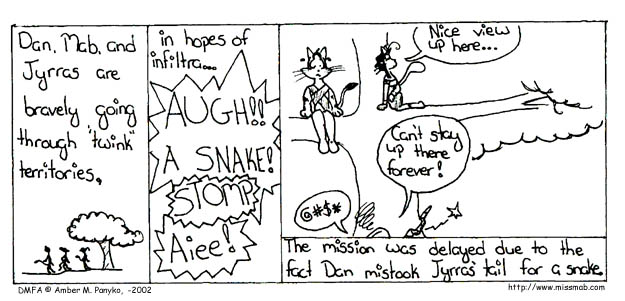 Dan, Mab, and
Jyrras are
bravely going
through "twink"
territories,
in hopes of
infiltra...
AUGH!!
A SNAKE!
STOMP
Aiee!
Nice view
up here...
Can't stay
up there
forever!
@#$*
The mission was delayed due to the
fact Dan mistook Jyrras' tail for a snake.
DMFA © Amber M. Panyko, -2002
http://www.missmab.com